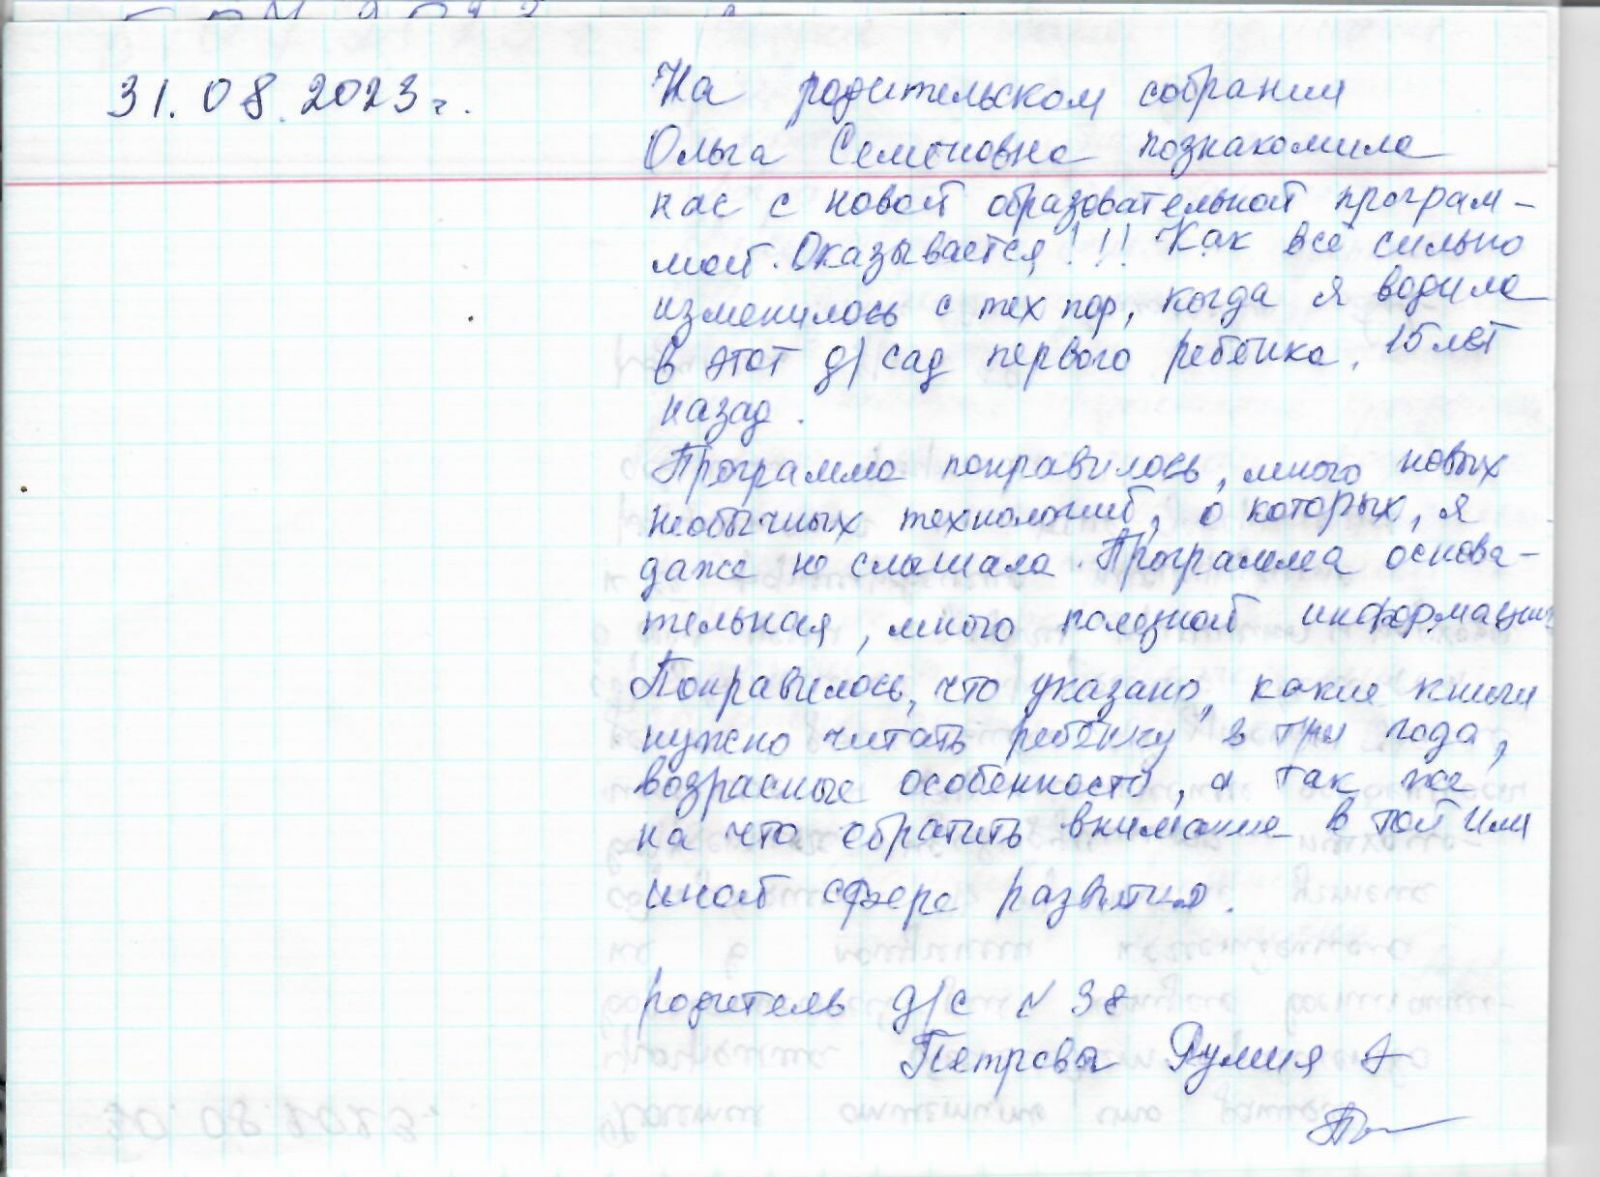 31.08.2023г.
На родительском собрании
Ольга Семеновна познакомила
нас с новой образовательной програм-
мой. Оказывается!!! Как все сильно
изменилось с тех пор, когда я водила
в этот д/сад первого ребенка. 15 лет
назад.
Программа понравилось, много новых
необычных технологий, о которых, я
даже не слышала. Программа основа-
тельная, много полезной информации
Понравилось, что указано, какие книги
нужно читать ребенку в три года,
возрасные особенности, а так же
на что обратить внимание в той или
иной сфере развития.
родитель д/с № 38
Петрова Румия А